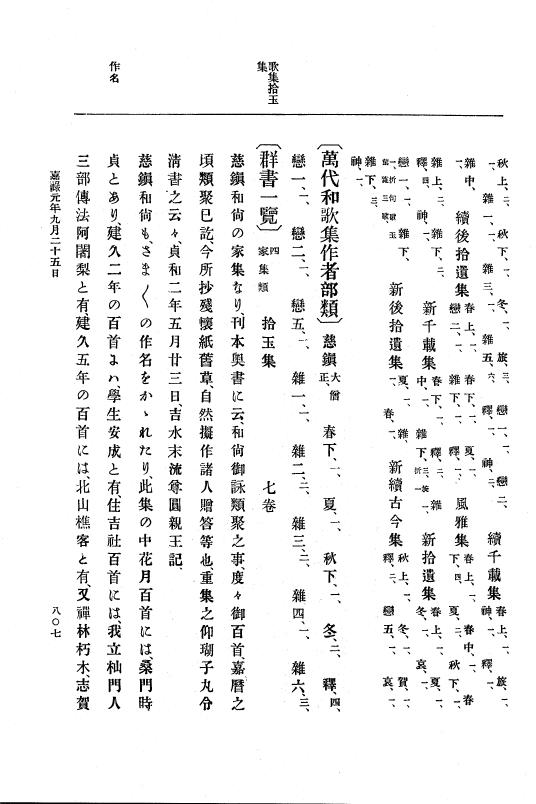 歌集拾玉
集
作名
秋上、二、 秋下、一、 冬、一、 旅、三、 戀一、一、 戀二、
一、 雜一、一、 雜三、一、 雜五、六、 釋、一、 神、二、 續千載集 春上、一、 旅、一、
雜中、一、 續後拾遺集 春上、一、 戀二、一、 春下、一、 雜下、一、 夏、一、 釋、一、 風雅集 春上、一、 下、四、 春中、一、 夏、二、 秋下、一、 春
雜上、二、 雜下、二、 釋、四、 神、一、 新千載集 春下、一、 中、一、 雜下、 新拾遺集 春上、一、 冬、一、 夏、一、 哀、一、
戀一、一、 雜下、 新後拾遺集 夏、一、 春、一、 雜 新續古今集 秋上、一、 釋、二、 冬、一、 戀五、一、 賀、一、 哀、一、
雜下、三、
神、一、
〔萬代和歌集作者部類〕 慈鎭 大僧正、 春下、一、 夏、一、 秋下、一、 冬、二、 釋、四、
戀一、一、 戀二、一、 戀五、一、 雜一、一、 雜二、二、 雜三、二、 雜四、一、 雜六、三、
〔群書一覽〕 四 家集類 拾玉集 七卷
慈鎭和尙の家集なり、刊本奧書に云、和尙御詠類聚之事、度々御百首、嘉曆之
頃類聚已訖、今所抄殘懷紙舊草、自然擬作諸人贈答等也、重集之仰瑚子丸令
淸書之云々、貞和二年五月廿三日、吉水末流尊圓親王記、
慈鎭和尙も、さま〲の作名をかゝれたり、此集の中花月百首には、桑門時
貞とあり、建久二年の百首よハ學生安成と有、住吉社百首には、我立杣門人
三部傳法阿闍梨と有、建久五年の百首には、北山樵客と有、又禪林朽木、志賀
嘉祿元年九月二十五日
八〇七